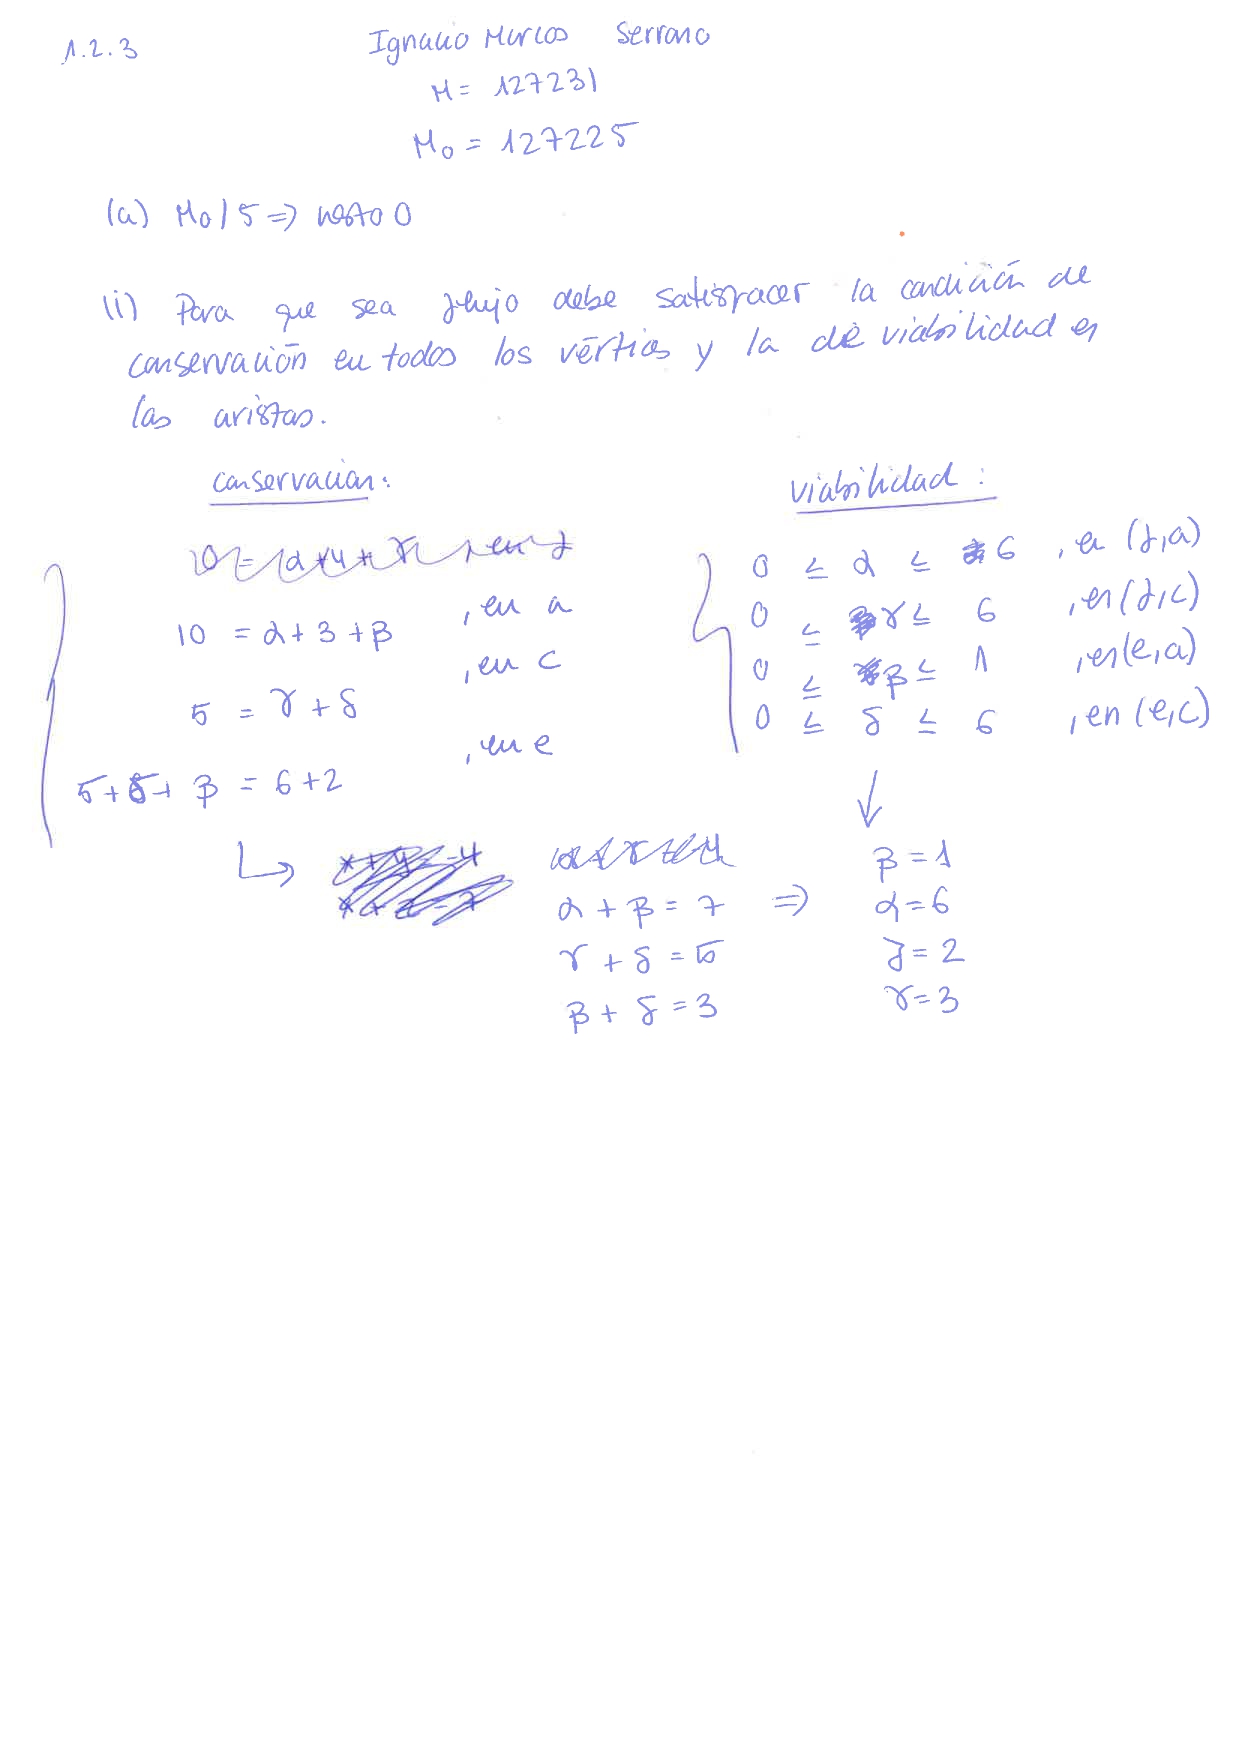 1.2.3
Ignacio Marcos Serrano
M = 127231
M₀ = 127225
(a) M₀ / 5 => resto 0
(i) Para que sea flujo debe satisfacer la condición de
conservación en todos los vértices y la de viabilidad en
las aristas.
conservación:
10 = α + 3 + β , en a
5 = γ + δ , en c
5 + δ + β = 6 + 2 , en e
viabilidad:
0 ≤ α ≤ 6 , en (f,a)
0 ≤ γ ≤ 6 , en (f,c)
0 ≤ β ≤ 1 , en (e,a)
0 ≤ δ ≤ 6 , en (e,c)
α + β = 7 => β = 1
γ + δ = 5 α = 6
β + δ = 3 δ = 2
γ = 3